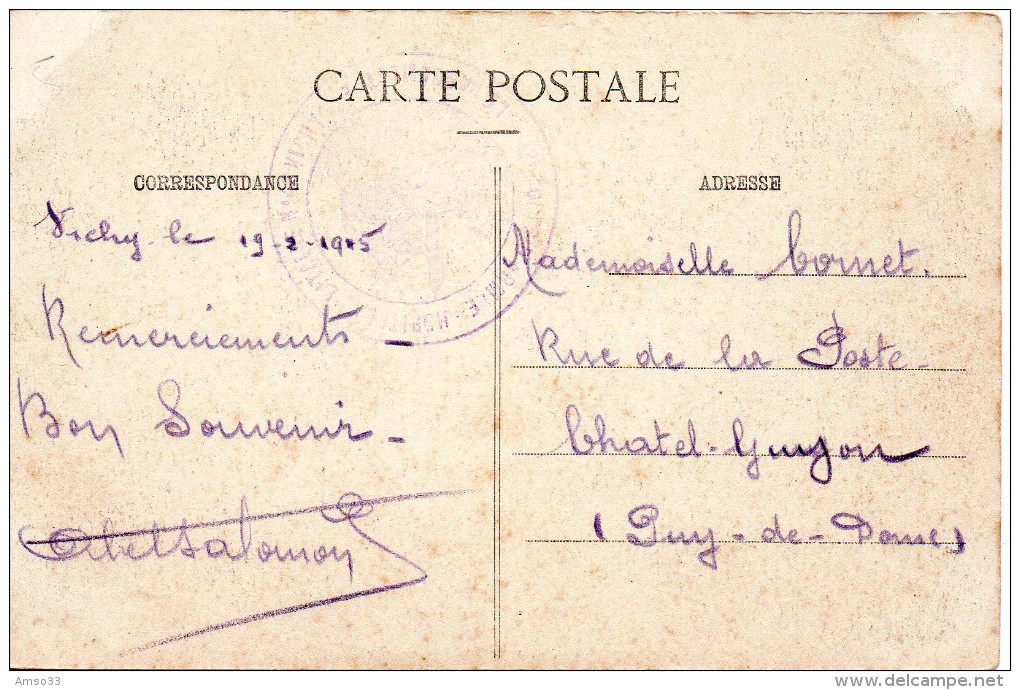 CARTE POSTALE
CORRESPONDANCE
Vichy le 19-2-1915
Remerciements -
Bon Souvenir -
ADRESSE
Mademoiselle Cornet.
Rue de la Poste -
Chatel-Guyon
(Puy-de-Dome)
Amso33
www.delcampe.net